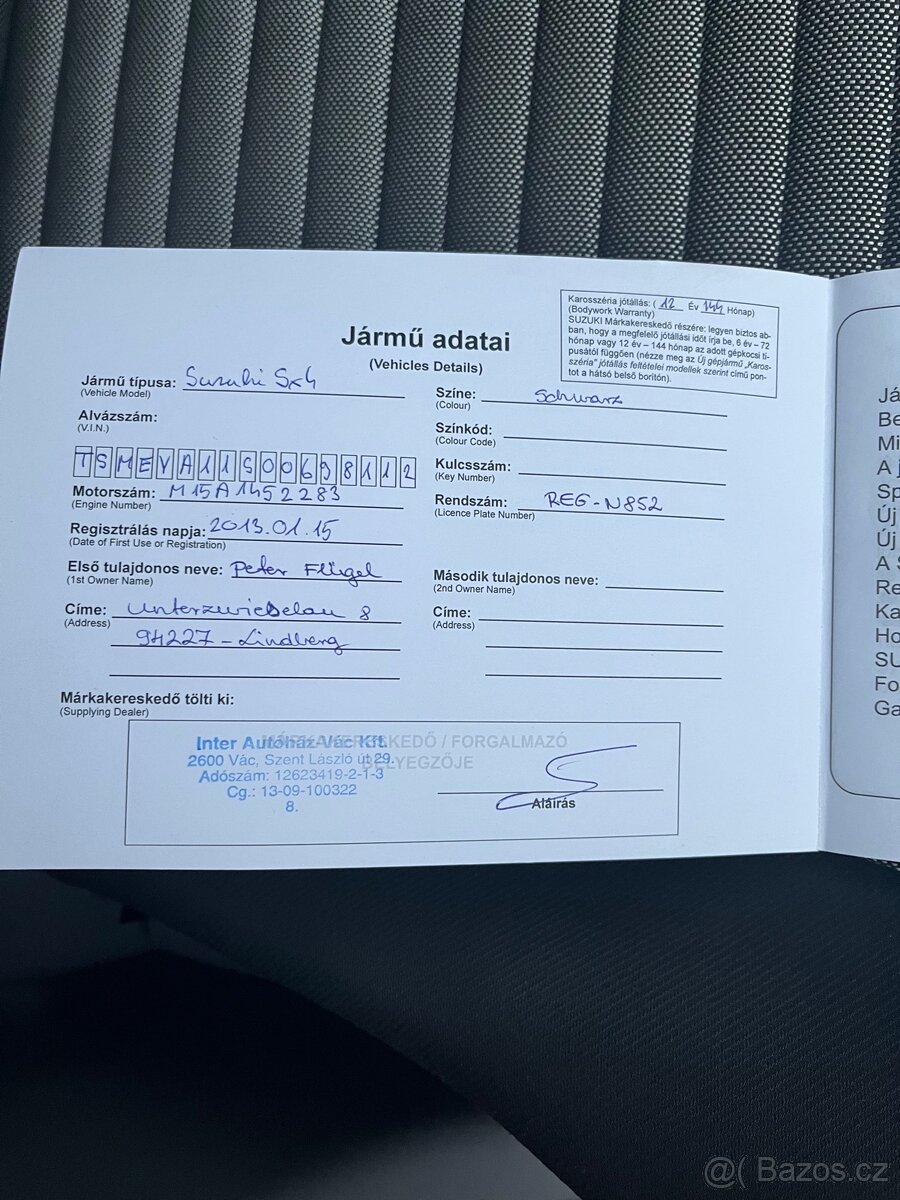 Karosszéria jótállás: ( 12 Év 144 Hónap)
(Bodywork Warranty)
SUZUKI Márkakereskedő részére: legyen biztos ab-
ban, hogy a megfelelő jótállási időt írja be, 6 év – 72
hónap vagy 12 év – 144 hónap az adott gépkocsi tí-
pusától függően (nézze meg az Új gépjármű „Karos-
széria” jótállás feltételei modellek szerint című pon-
tot a hátsó belső borítón).
Jármű adatai
(Vehicles Details)
Jármű típusa: Suzuki Sx4
(Vehicle Model)
Alvázszám:
(V.I.N.)
TSMEYA11S00698112
Motorszám: M15A1452283
(Engine Number)
Regisztrálás napja: 2013.01.15
(Date of First Use or Registration)
Első tulajdonos neve: Peter Flügel
(1st Owner Name)
Címe: Unterzwieselau 8
(Address)
94227 - Lindberg
Színe: Schwarz
(Colour)
Színkód:
(Colour Code)
Kulcsszám:
(Key Number)
Rendszám: REG-N852
(Licence Plate Number)
Második tulajdonos neve:
(2nd Owner Name)
Címe:
(Address)
Márkakereskedő tölti ki:
(Supplying Dealer)
MÁRKAKERESKEDŐ / FORGALMAZÓ
BÉLYEGZŐJE
Inter Autóház-Vác Kft.
2600 Vác, Szent László út 29.
Adószám: 12623419-2-1-3
Cg.: 13-09-100322
8.
Aláírás
Já
Be
Mi
A j
Sp
Új
Új
A S
Re
Ka
Ho
SU
Fo
Ga
@( Bazos.cz